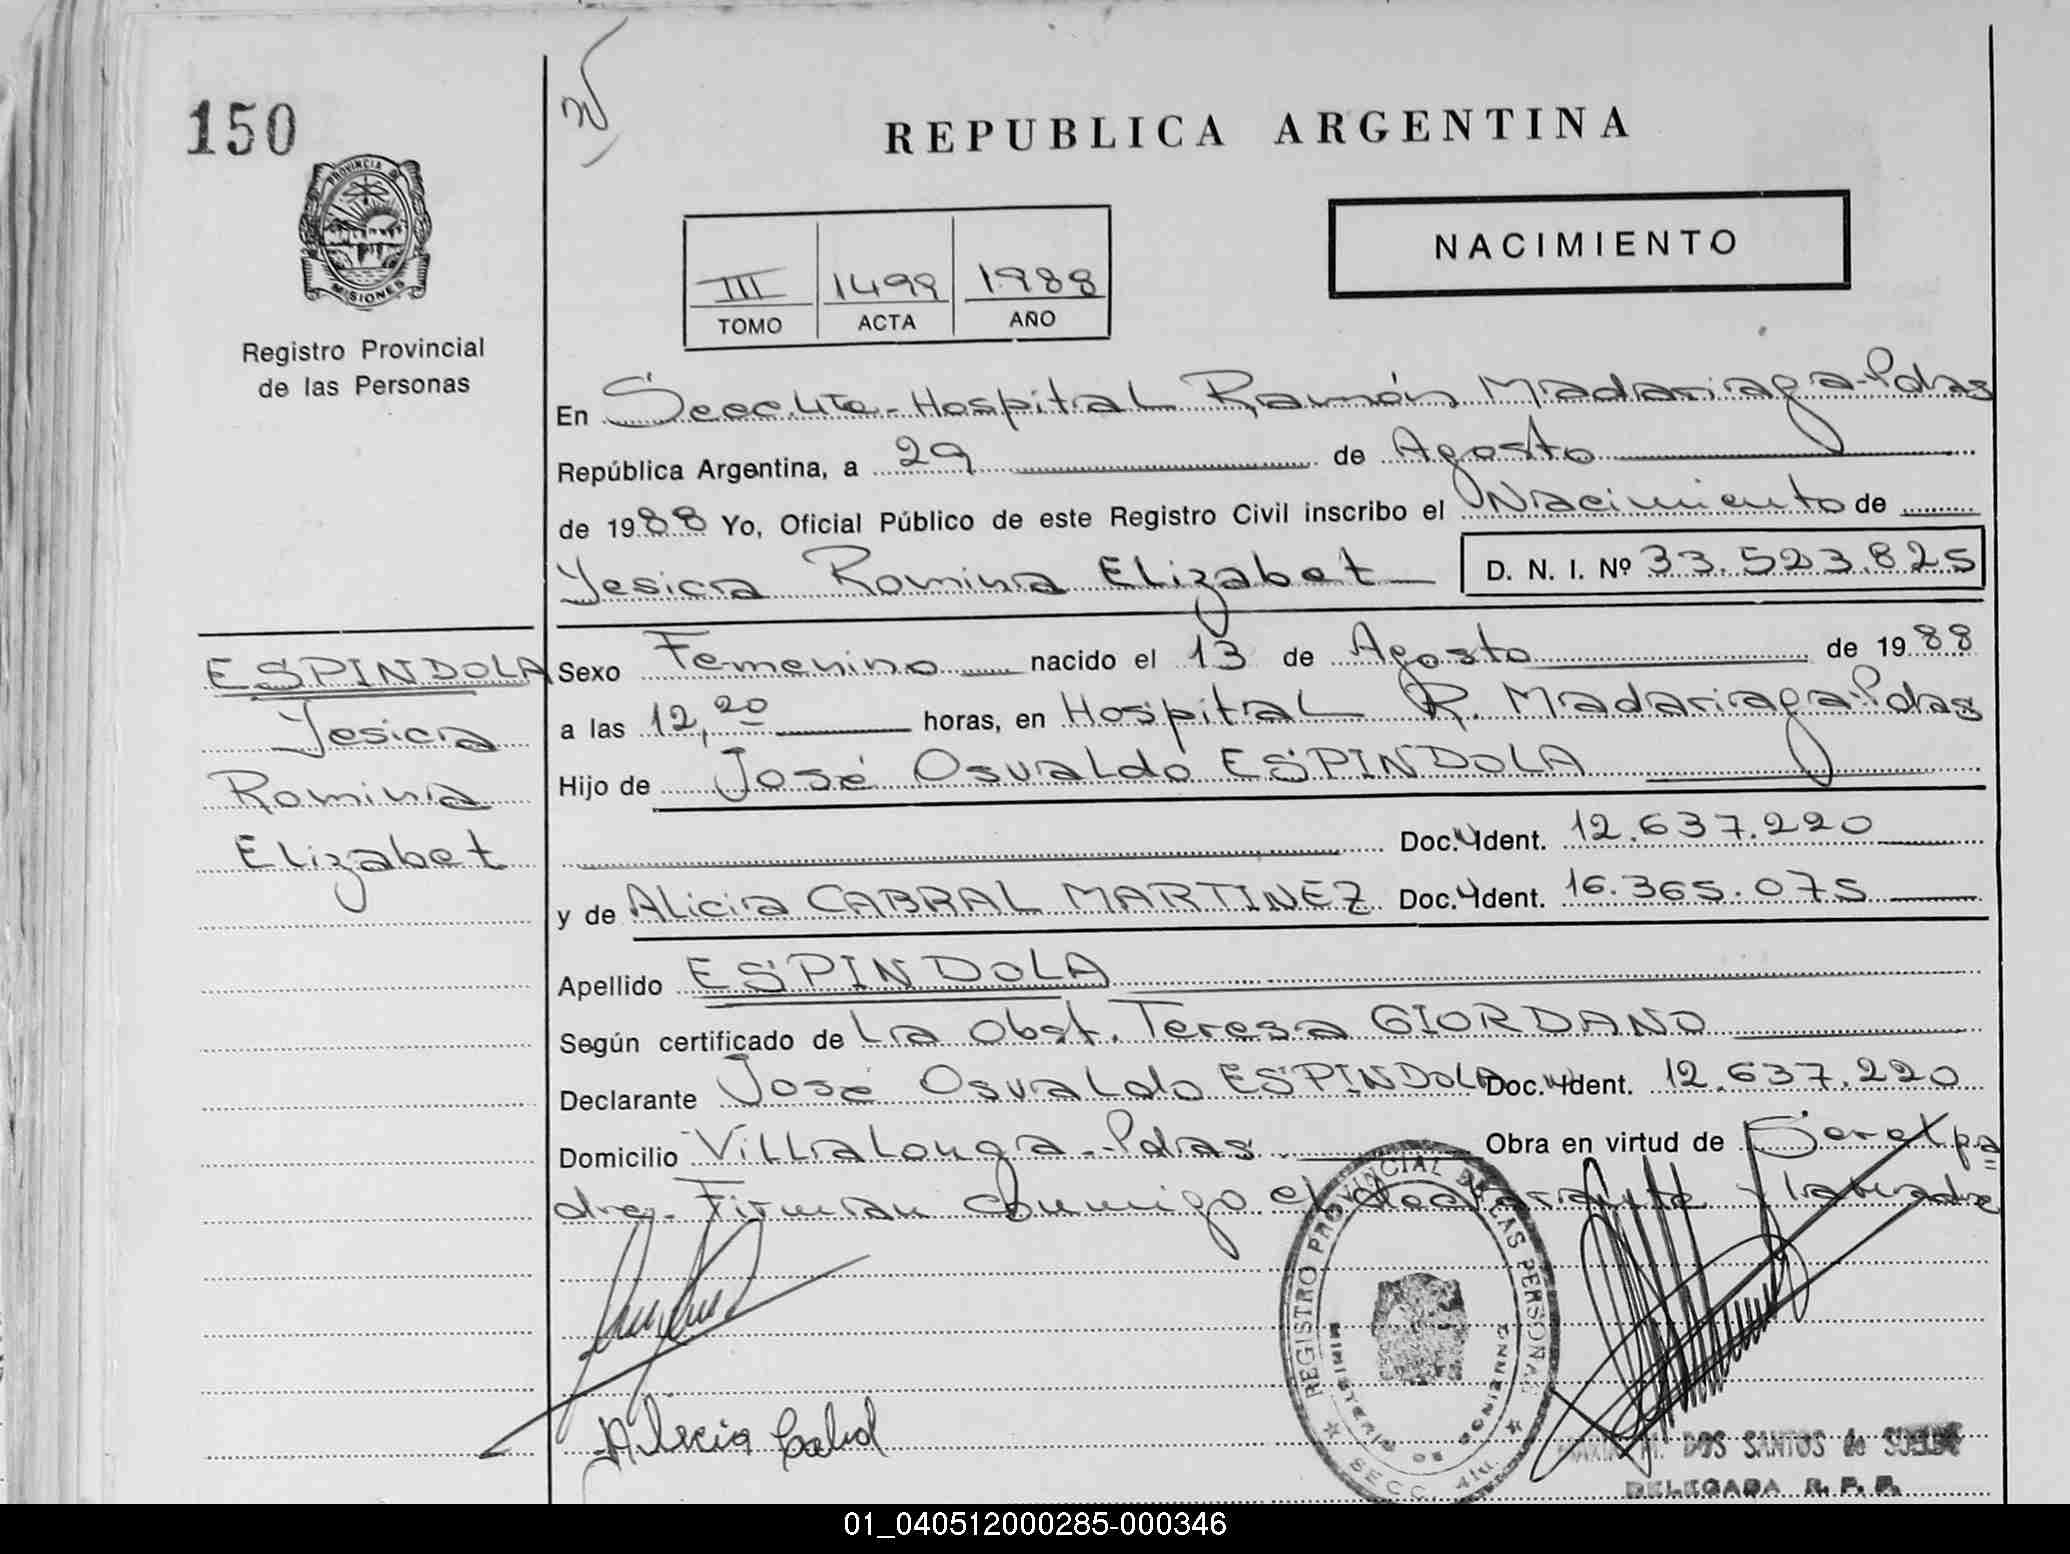 150
REPUBLICA ARGENTINA
PROVINCIA DE
MISIONES
NACIMIENTO
III 1499 1988
TOMO ACTA AÑO
Registro Provincial
de las Personas
En Secc. 4ta. Hospital Ramón Madariaga-Pdas
República Argentina, a 29 de Agosto
de 1988 Yo, Oficial Público de este Registro Civil inscribo el Nacimiento de
Yesica Romina Elizabet D. N. I. Nº 33.523.825
ESPINDOLA
Yesica
Romina
Elizabet
Sexo Femenino nacido el 13 de Agosto de 1988
a las 12,20 horas, en Hospital R. Madariaga-Pdas
Hijo de José Osvaldo ESPINDOLA
Doc. Ident. 12.637.220
y de Alicia CABRAL MARTINEZ Doc. Ident. 16.365.075
Apellido ESPINDOLA
Según certificado de La Obst. Teresa GIORDANO
Declarante José Osvaldo ESPINDOLA Doc. Ident. 12.637.220
Domicilio Villalonga-Pdas Obra en virtud de Ser el pa
dre.- Firman conmigo el declarante y la madre
Alicia Cabral
REGISTRO PROVINCIAL DE LAS PERSONAS
MINISTERIO DE GOBIERNO
SECC. 4ta.
DOS SANTOS de
DELEGADA R. P. P.
01_040512000285-000346